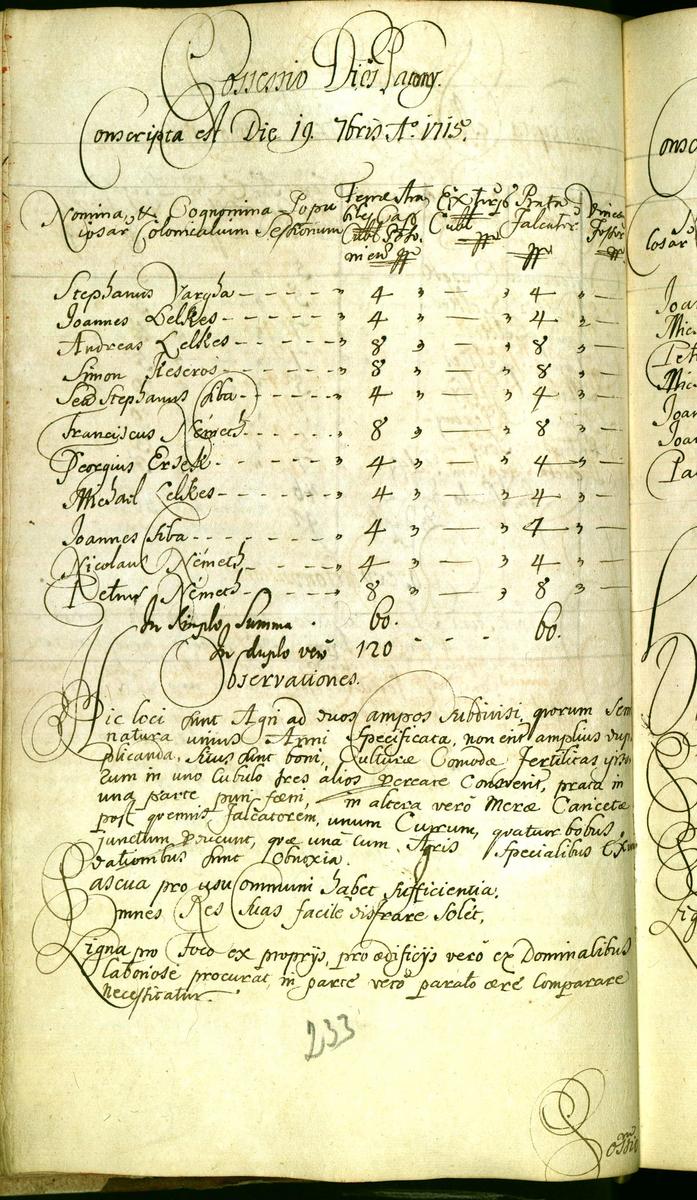 Possessio Diós Patony.
Conscripta est Die 19. 7bris Aō 1715.
Nomina, & Cognomina Popu
Cubl
Prata
Falcator
ipsar Colonicalium Sessionum
Stephanus Vargha - - - - - " 4 " — " 4 " —
Joannes Lelkes - - - - - " 4 " — " 4 " —
Andreas Lelkes - - - - - " 8 " — " 8 " —
Simon Keseros - - - - - " 8 " — " 8 " —
Stephanus Csiba - - - - " 4 " — " 4 " —
Franciscus Németh - - - - " 8 " — " 8 " —
Georgius Ersek - - - - - " 4 " — " 4 " —
Michael Lelkes - - - - - " 4 " — " 4 " —
Joannes Csiba - - - - - " 4 " — " 4 " —
Nicolaus Németh - - - - " 4 " — " 4 " —
Petrus Németh - - - - " 8 " — " 8 " —
In Simplo Summa . 60. 60.
In duplo verō 120 - - -
Observationes.
Hic loci sunt Agri ad duos Campos subdivisi, quorum Semi
natura unius Anni Specificata, non erit amplius du
plicanda. Situs sunt boni, Culturæ Comodæ Fertilitas
in uno Cubulo tres alios procreare Convenit, prata in
una parte puri fæni, in altera verō Meræ
post quemvis Falcatorem, unum Currum, quatuor bobus
junctum producunt, quæ unā cum Agris Specialibus
dationibus sunt Obnoxia.
Pascua pro usu Communi habet Sufficientia.
Omnes Res Suas facile distrahere Solet,
Ligna pro Foco ex proprijs, pro ædificijs verō ex Dominalibus
laboriose procurat, in parte verō parato ære Comparare
necessitatur.
233